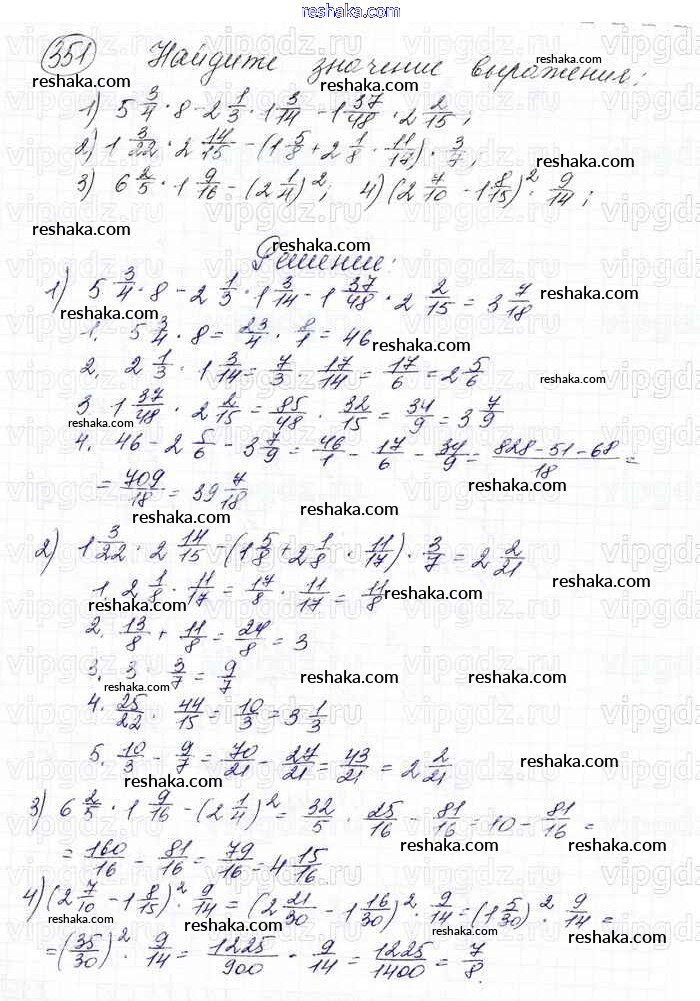 reshaka.com
351 Найдите значение выражения:
1) 5 3/4 · 8 - 2 1/3 · 1 3/14 - 1 37/48 · 2 2/15;
2) 1 3/22 · 2 14/15 - (1 5/8 + 2 1/8 · 11/17) · 3/7;
3) 6 2/5 · 1 9/16 - (2 1/4)²; 4) (2 7/10 - 1 8/15)² · 9/14;
Решение:
1) 5 3/4 · 8 - 2 1/3 · 1 3/14 - 1 37/48 · 2 2/15 = 3 7/18
1. 5 3/4 · 8 = 23/4 · 8/1 = 46
2. 2 1/3 · 1 3/14 = 7/3 · 17/14 = 17/6 = 2 5/6
3 1 37/48 · 2 2/15 = 85/48 · 32/15 = 34/9 = 3 7/9
4. 46 - 2 5/6 - 3 7/9 = 46/1 - 17/6 - 34/9 = 828-51-68/18 =
= 709/18 = 39 7/18
2) 1 3/22 · 2 14/15 - (1 5/8 + 2 1/8 · 11/17) · 3/7 = 2 2/21
1. 2 1/8 · 11/17 = 17/8 · 11/17 = 11/8
2. 13/8 + 11/8 = 24/8 = 3
3. 3 · 3/7 = 9/7
4. 25/22 · 44/15 = 10/3 = 3 1/3
5. 10/3 - 9/7 = 70/21 - 27/21 = 43/21 = 2 2/21
3) 6 2/5 · 1 9/16 - (2 1/4)² = 32/5 · 25/16 - 81/16 = 10 - 81/16 =
= 160/16 - 81/16 = 79/16 = 4 15/16
4) (2 7/10 - 1 8/15)² · 9/14 = (2 21/30 - 1 16/30)² · 9/14 = (1 5/30)² · 9/14 =
= (35/30)² · 9/14 = 1225/900 · 9/14 = 1225/1400 = 7/8.